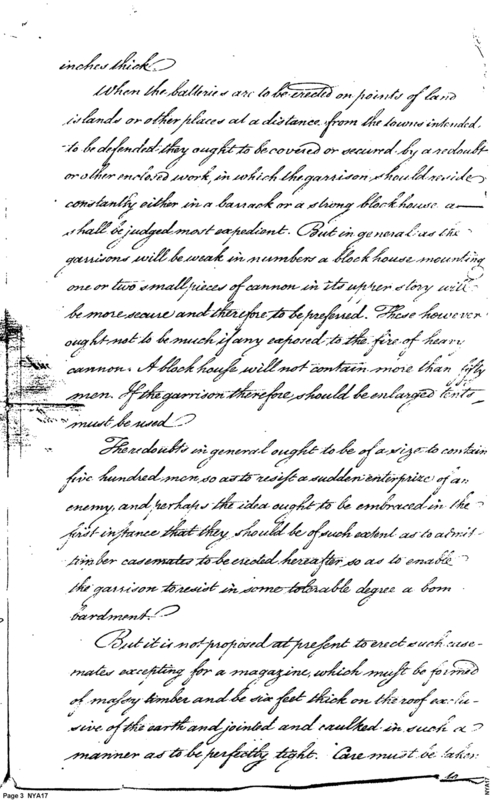 inches thick
When the batteries are to be erected on points of land
islands or other places at a distance from the towns intended
to be defended they ought to be covered or secured by a redoubt
or other enclosed work, in which the garrison should reside
constantly either in a barrack or a strong blockhouse a—
shall be judged most expedient. But in general as the
garrisons will be weak in numbers a blockhouse mounting
one or two small pieces of cannon in its upper story will
be more secure and therefore to be preferred. These however
ought not to be much if any exposed to the fire of heavy
cannon. A blockhouse will not contain more than fifty
men. If the garrison therefore, should be enlarged tents
must be used
The redoubts in general ought to be of a size to contain
five hundred men, so as to resist a sudden enterprize of an
enemy, and perhaps the idea ought to be embraced in the
first instance that they should be of such extent as to admit
timber casemates to be erected hereafter, so as to enable
the garrison to resist in some tolerable degree a bom
bardment.
But it is not proposed at present to erect such case-
mates excepting for a magazine, which must be formed
of massy timber and be six feet thick on the roof exclu-
sive of the earth and jointed and caulked in such a
manner as to be perfectly tight. Care must be taken
to
Page 3 NYA17
NYA17